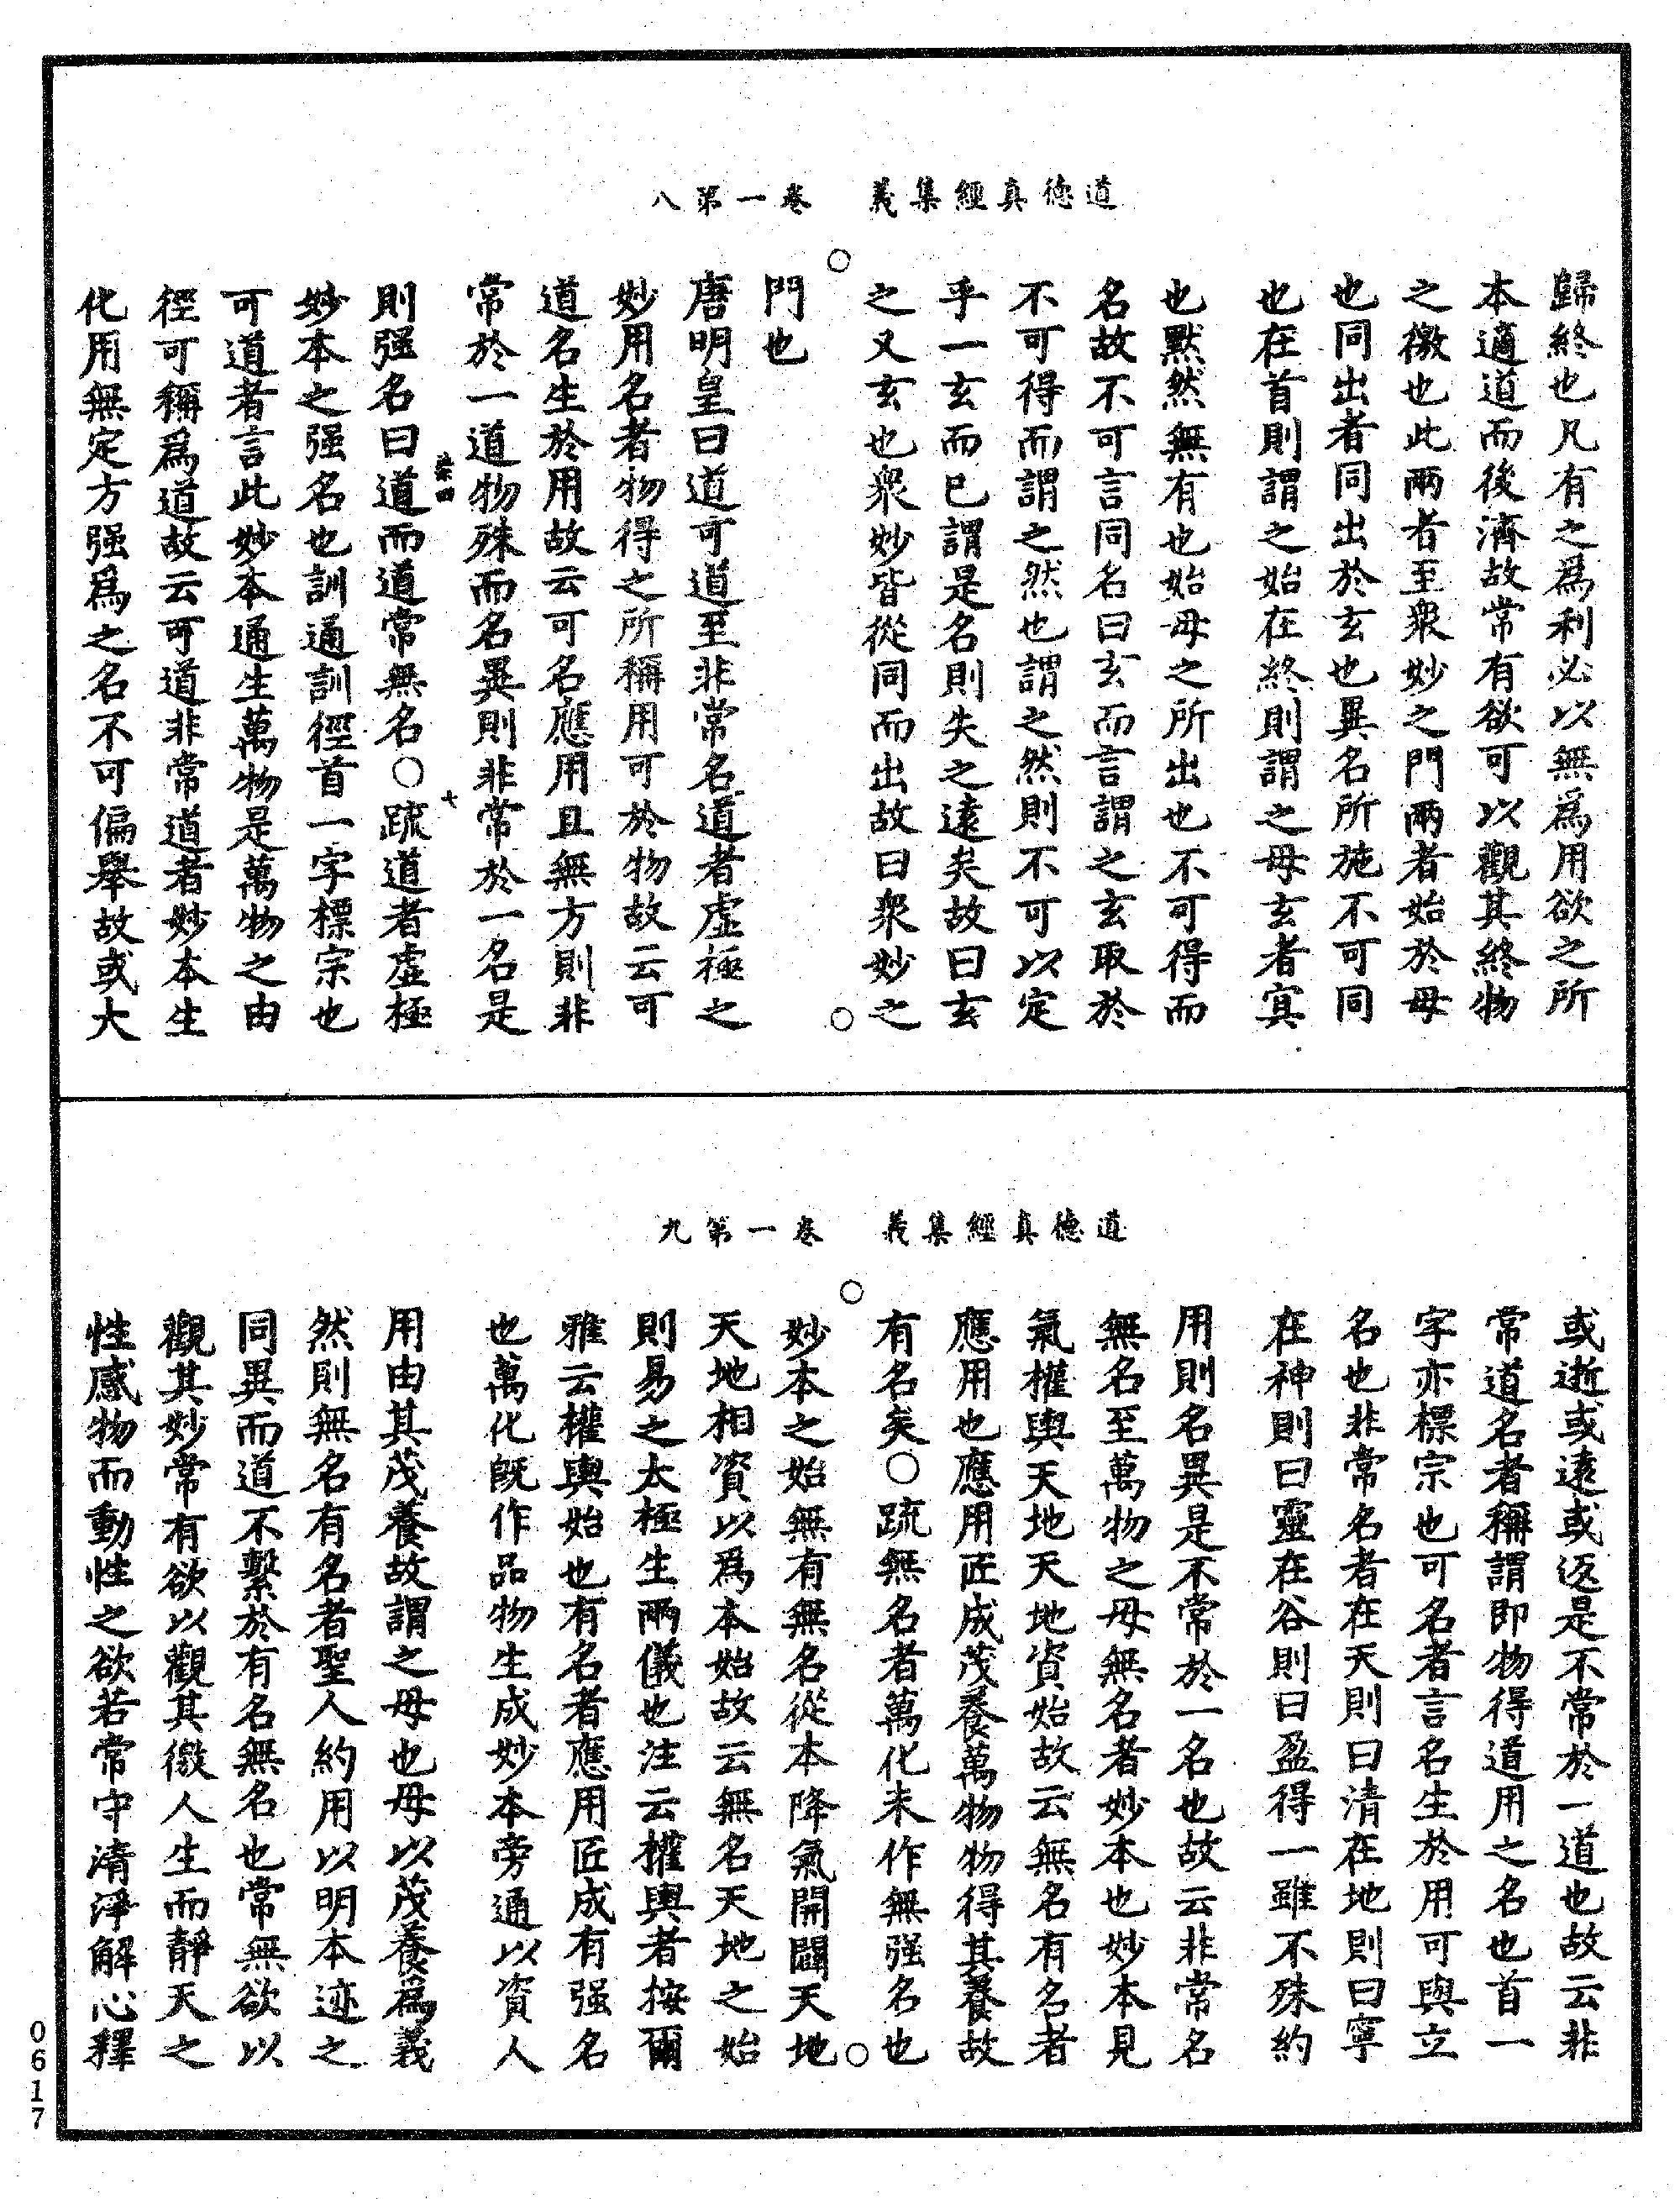 道德真經集義　卷一第八
歸終也凡有之爲利必以無爲用欲之所
本適道而後濟故常有欲可以觀其終物
之徼也此兩者至衆妙之門兩者始於母
也同出者同出於玄也異名所施不可同
也在首則謂之始在終則謂之母玄者㝠
也默然無有也始母之所出也不可得而
名故不可言同名曰玄而言謂之玄取於
不可得而謂之然也謂之然則不可以定
乎一玄而已謂是名則失之遠矣故曰玄
之又玄也衆妙皆從同而出故曰衆妙之
門也
唐明皇曰道可道至非常名道者虛極之
妙用名者物得之所稱用可於物故云可
道名生於用故云可名應用且無方則非
常於一道物殊而名異則非常於一名是
則强名曰道而道常無名○疏道者虛極
妙本之强名也訓通訓徑首一字標宗也
可道者言此妙本通生萬物是萬物之由
徑可稱爲道故云可道非常道者妙本生
化用無定方强爲之名不可偏舉故或大
道德真經集義　卷一第九
或逝或遠或返是不常於一道也故云非
常道名者稱謂即物得道用之名也首一
字亦標宗也可名者言名生於用可與立
名也非常名者在天則曰清在地則曰寧
在神則曰靈在谷則曰盈得一雖不殊約
用則名異是不常於一名也故云非常名
無名至萬物之母無名者妙本也妙本見
氣權輿天地天地資始故云無名有名者
應用也應用匠成茂養萬物物得其養故
有名矣○疏無名者萬化未作無强名也
妙本之始無有無名從本降氣開闢天地
天地相資以爲本始故云無名天地之始
則易之太極生兩儀也注云權輿者按爾
雅云權輿始也有名者應用匠成有强名
也萬化旣作品物生成妙本旁通以資人
用由其茂養故謂之母也母以茂養爲義
然則無名有名者聖人約用以明本迹之
同異而道不繫於有名無名也常無欲以
觀其妙常有欲以觀其徼人生而靜天之
性感物而動性之欲若常守清淨解心釋
0617